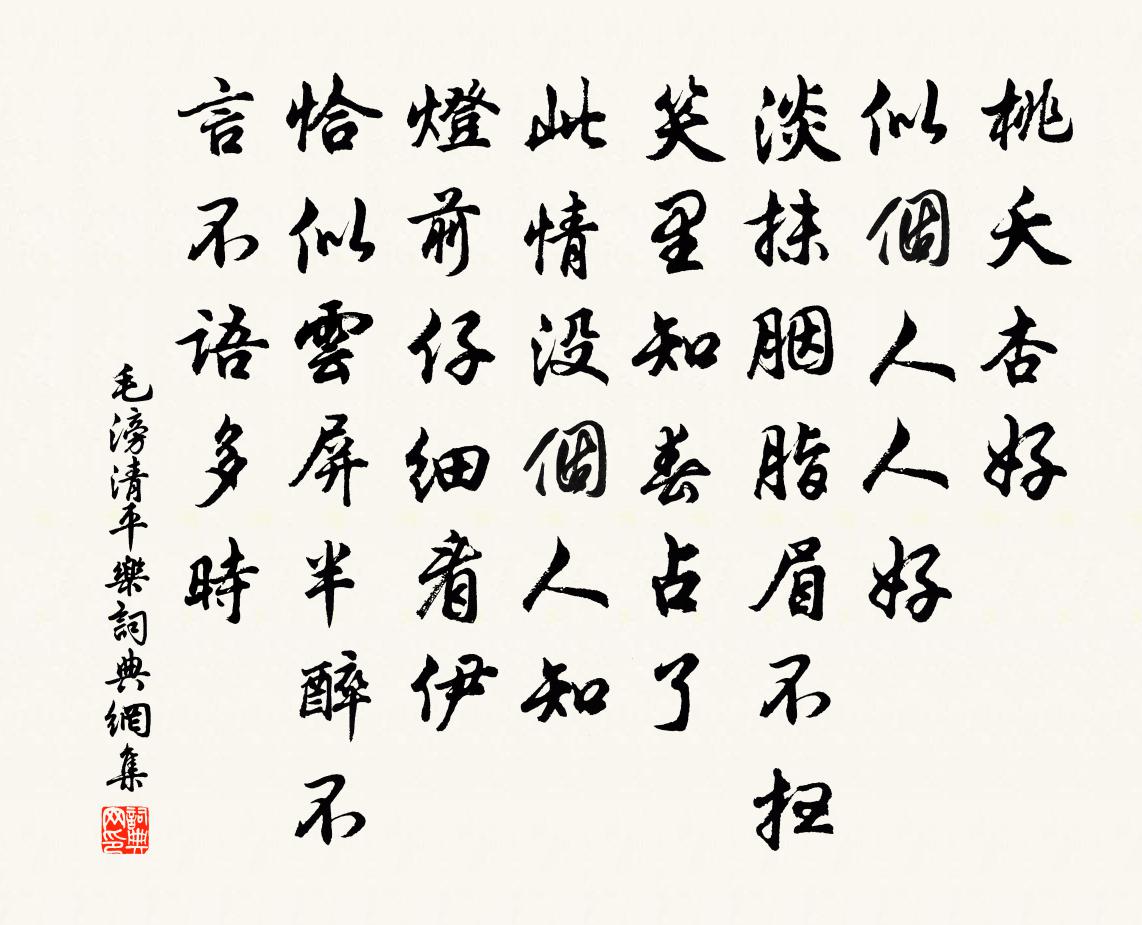 桃夭杏好
似個人人好
淡抹胭脂眉不扫
笑里知春占了
此情没個人知
燈前仔细看伊
恰似雲屏半醉不
言不語多時
毛滂清平樂詞典網集
詞典
网印